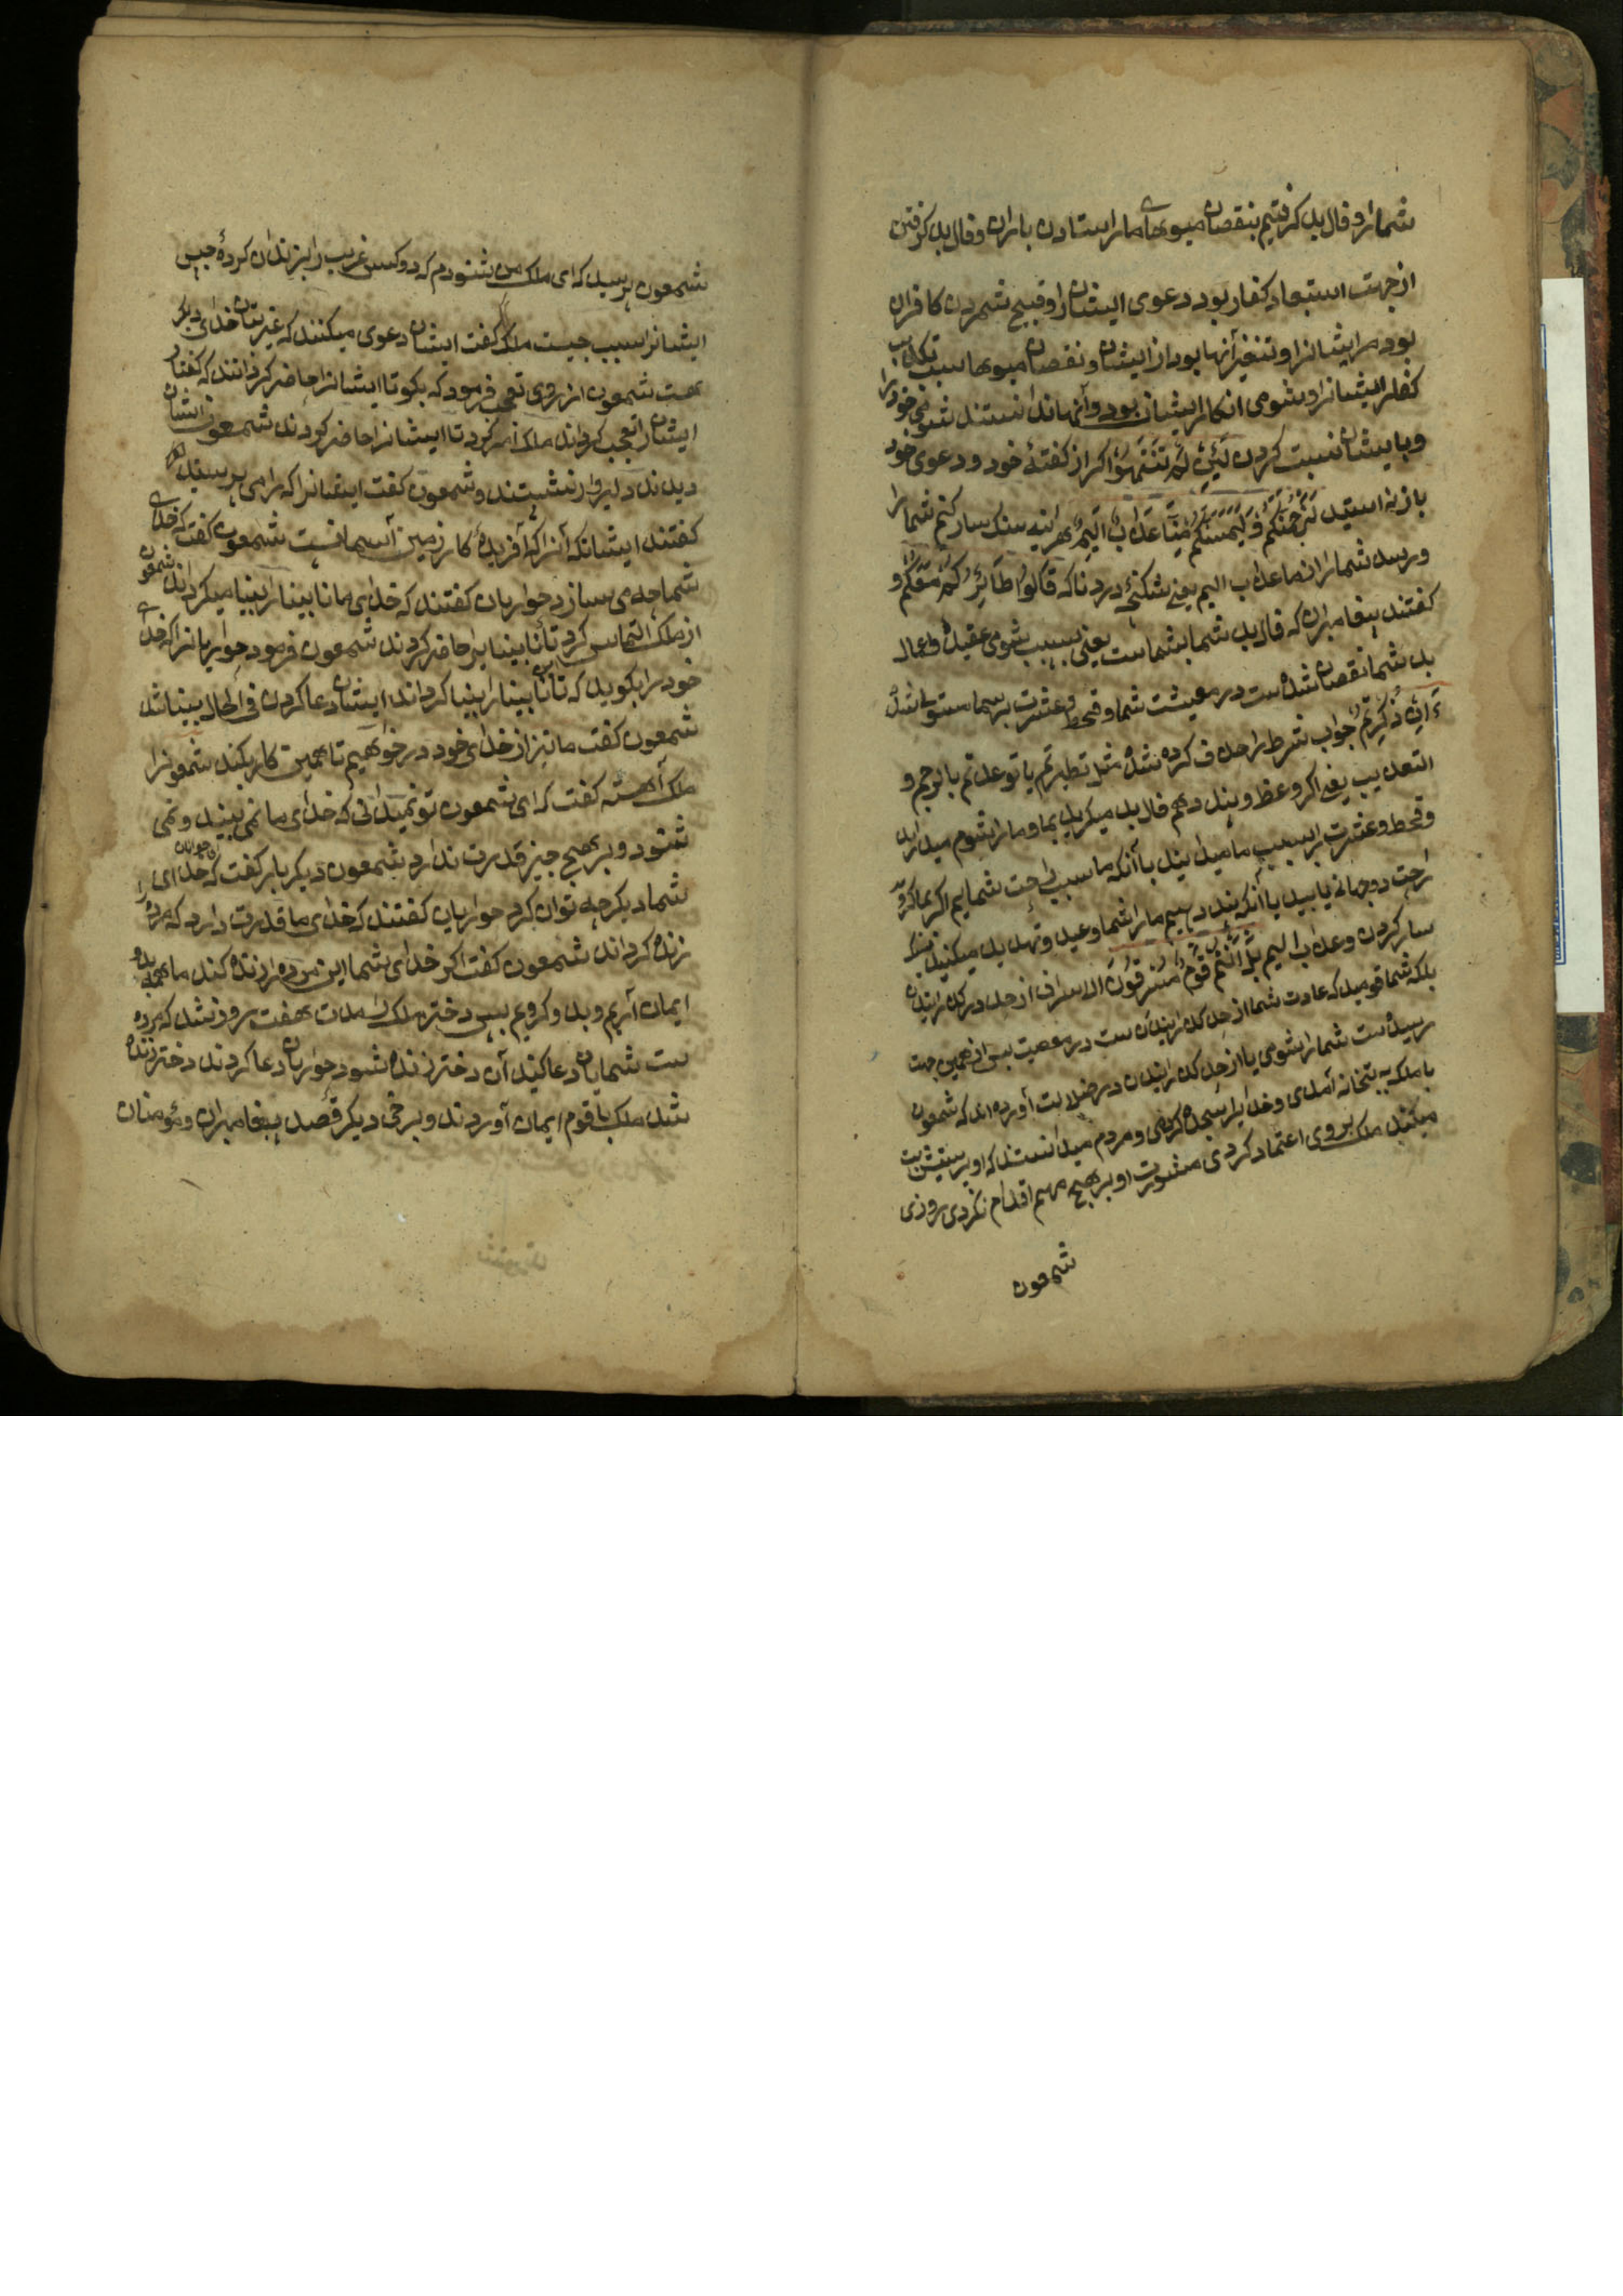 شمارا و فال بد کرفتیم بنقصان میوهاء ما را ستادن باران و فال بد کرفتن
از جهت استبعاد کفار بود دعوی ایشانرا و قبیح شمردن کافران
بود مر ایشانرا و تنفیر آنها بود از ایشان و نقصان میوها سبب تکذیب
کفار ایشانرا و شومی انکار ایشان بود و آنها ندانستند شومی خود را
و بایشان نسبت کردن لَئِنْ لَمْ تَنْتَهُوا اکر از کفتهٔ خود و دعوی خود
باز نه استید لَنَرْجُمَنَّكُمْ وَلَيَمَسَّنَّكُمْ مِنَّا عَذَابٌ اَلِيمٌ هر اینه سنک سار کنم شما را
و رسد شما را از ما عذاب الیم یعنی شکنجهٔ دردناکه قَالُوا طَائِرُكُمْ مَعَكُمْ
کفتند پیغامبران که فال بد شما بشماست یعنی بسبب شومی عقیده و اعمال
بد شما نقصان شده است در معیشت شما و قحط و عشرت بر شما مستولی شده
ءَاِنْ ذُكِّرْتُمْ جواب شرط را حذف کرده شده مثل تطیرتم یا توعدتم بالرجم و
التعذیب یعنی اکر وعظ و پند دهم فال بد میکرید بما و ما را شوم میدارید
و قحط و عشرت را بسبب ما میدانید با آنکه ما سبب راحت شمایم اکر بما کروید
راحت دوجهانی یابید یا آنکه پند دهیم ما را شما وعید و تهدید میکنید بسنک
سار کردن و عذاب الیم بَلْ اَنْتُمْ قَوْمٌ مُسْرِفُونَ الاسراف از حد در کذرانیدن
بلکه شما قومید که عادت شما از حد کذرانیدن ست در معصیت پس از همین جهت
رسیده ست شما را شومی یا از حد کذرانیدن در ضلالت آورده اند که شمعون
با ملک به بتخانه آمدی و خدایرا سجده کردی و مردم میدانستند که او پرستش بت
میکند ملک بر وی اعتماد کردی بی مشورت او بر هیچ مهم اقدام نکردی روزی
شمعون
شمعون پرسید که ای ملک من شنودم که دو کس غریب را بزندان کردهٔ حبس
ایشانرا سبب چیست ملک کفت ایشان دعوی میکنند که غیر بتان خدای دیکر
هست شمعون از روی تعجب فرمود که بکو تا ایشانرا حاضر کردانند که کفتار
ایشان تعجب کرداند ملک امر کرد تا ایشانرا حاضر کردند شمعون را ایشان
دیدند دلیروار نشستند و شمعون کفت ایشانرا که را می پرستید
کفتند ایشان که آنرا که آفریدهٔ کار زمین آسمانست شمعون کفت که خدای
شما چه می سازد حواریان کفتند که خدای ما نابینا را بینا میکرداند شمعون
از ملک التماس کرد تا نابینایرا حاضر کردند شمعون فرمود حواریانرا که خدای
خود را بکویید که تا نابینا را بینا کرداند ایشان دعا کردن فی الحال بینا شد
شمعون کفت ما نیز از خدای خود در خواهیم تا همین کار بکند شمعونرا
ملک آهسته کفت که ای شمعون تو نمیدانی که خدای ما نمی بیند و نمی
شنود و بر هیچ چیز قدرت ندارد شمعون دیکر بار کفت که خدای
شما دیکر چه توان کرد حواریان کفتند که خدای ما قدرت دارد که مرده را
زنده کرداند شمعون کفت اکر خدای شما این مرده را زنده کند ما همه
ایمان آریم و بدو کرویم پس دختر ملک را مدت هفت روز شد که مرده
ست شمایان دعا کنید آن دختر زنده شود حواریان دعا کردند دختر زنده
شد ملک با قوم ایمان آوردند و برخی دیکر قصد پیغامبران و مؤمنان